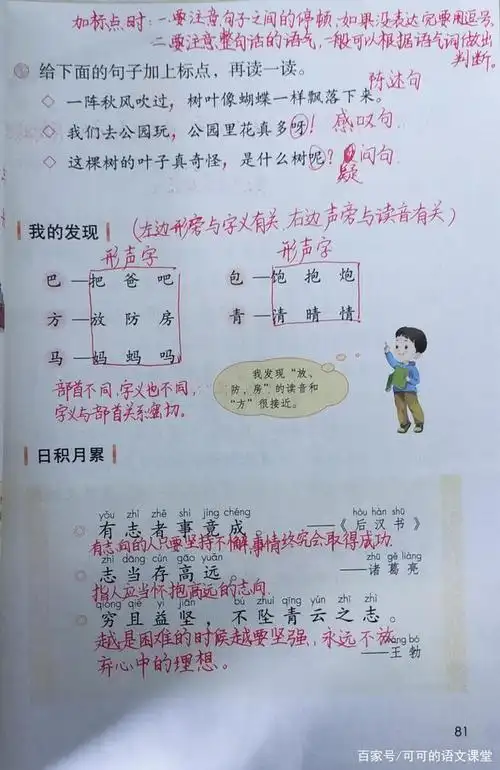 加标点时:一要注意句子之间的停顿,如果没表达完要用逗号,
二要注意整句话的语气,一般可以根据语气词做出
判断。
给下面的句子加上标点,再读一读。
陈述句
◇ 一阵秋风吹过,树叶像蝴蝶一样飘落下来。
◇ 我们去公园玩,公园里花真多呀!感叹句
◇ 这棵树的叶子真奇怪,是什么树呢?问句
疑
我的发现 (左边形旁与字义有关 右边声旁与读音有关)
形声字 形声字
巴 — 把 爸 吧 包 — 饱 抱 炮
方 — 放 防 房 青 — 清 晴 情
马 — 妈 蚂 吗
我发现“放、
防、房”的读音和
“方”很接近。
部首不同,字义也不同,
字义与部首关系密切。
日积月累
yǒu zhì zhě shì jìng chéng hòu hàn shū
有志者事竟成。 ——《后汉书》
有志向的人只要坚持不懈,事情终究会取得成功.
zhì dāng cún gāo yuǎn zhū gě liàng
志当存高远。 ——诸葛亮
指人应当怀抱高远的志向.
qióng qiě yì jiān bú zhuì qīng yún zhī zhì
穷且益坚,不坠青云之志。
越是困难的时候越要坚强,永远不放
bó
弃心中的理想。 ——王勃
81
百家号/可可的语文课堂